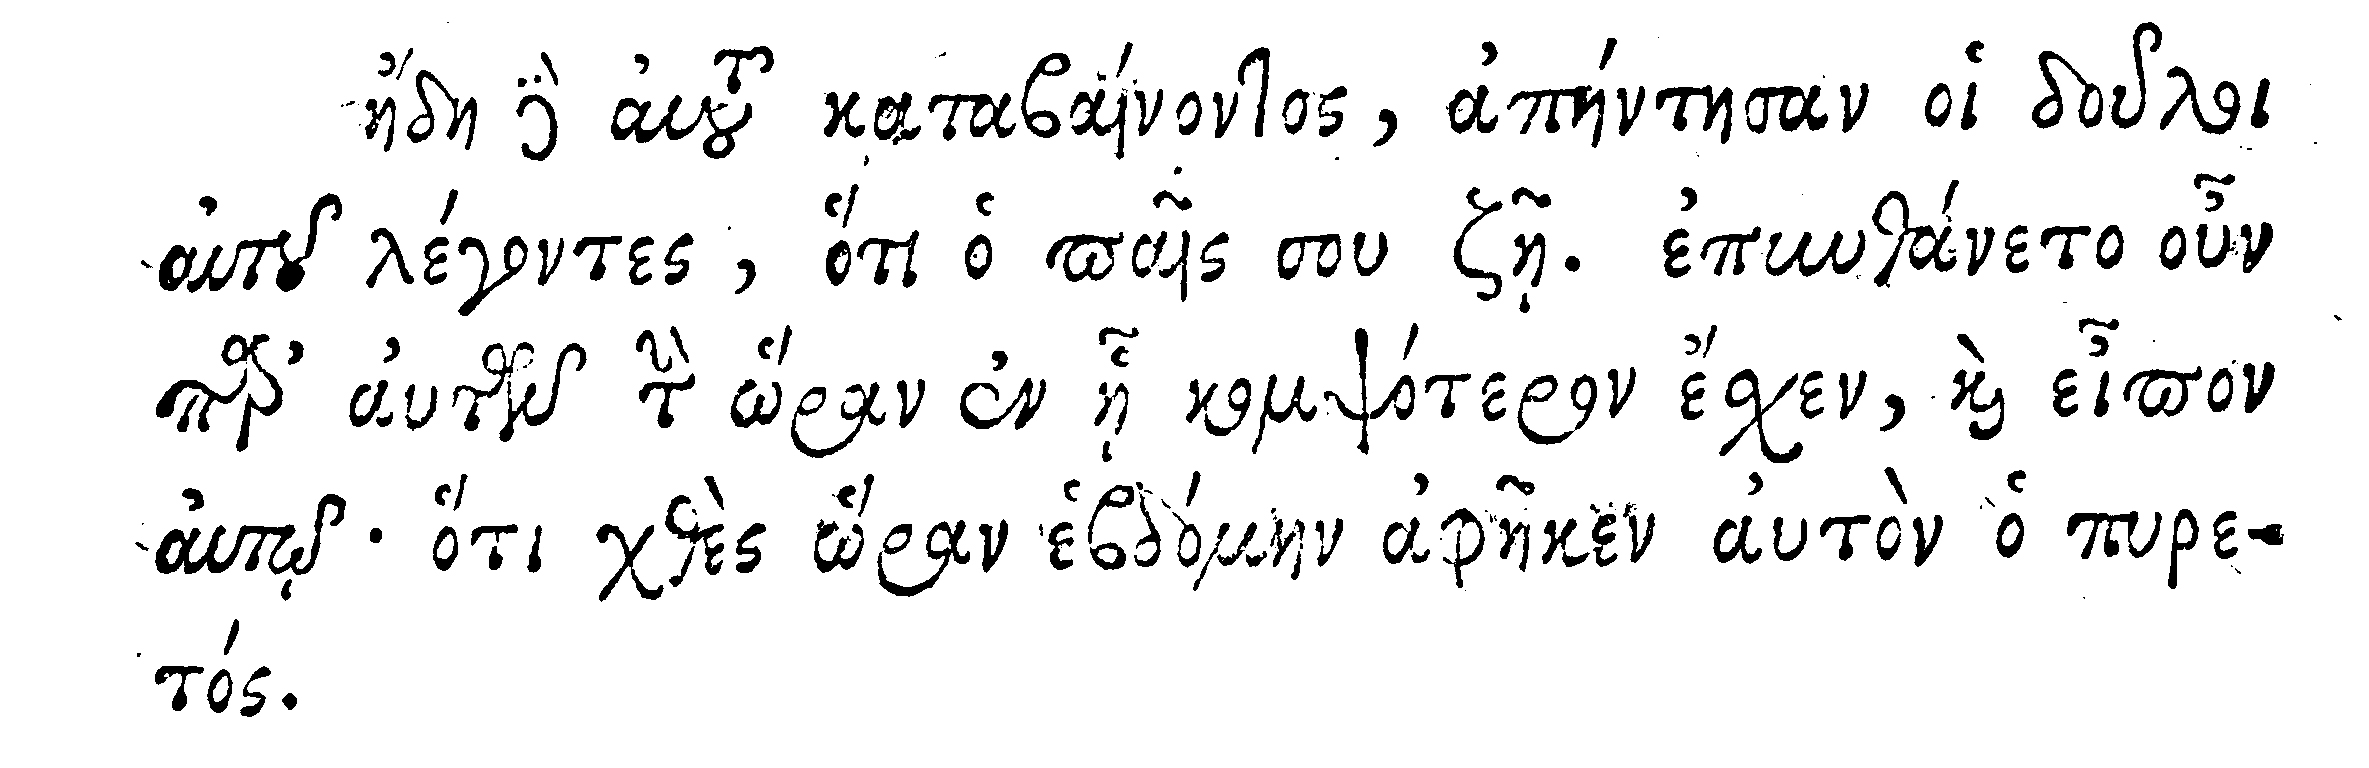 ἤδη δὲ αὐτοῦ καταβαίνοντος, ἀπήντησαν οἱ δοῦλοι
αὐτοῦ λέγοντες, ὅτι ὁ παῖς σου ζῇ. ἐπυνθάνετο οὖν
παρ’ αὐτῶν τὴν ὥραν ἐν ᾗ κομψότερον ἔχεν, καὶ εἶπον
αὐτῷ· ὅτι χθὲς ὥραν ἑβδόμην ἀφῆκεν αὐτὸν ὁ πυρε-
τός.